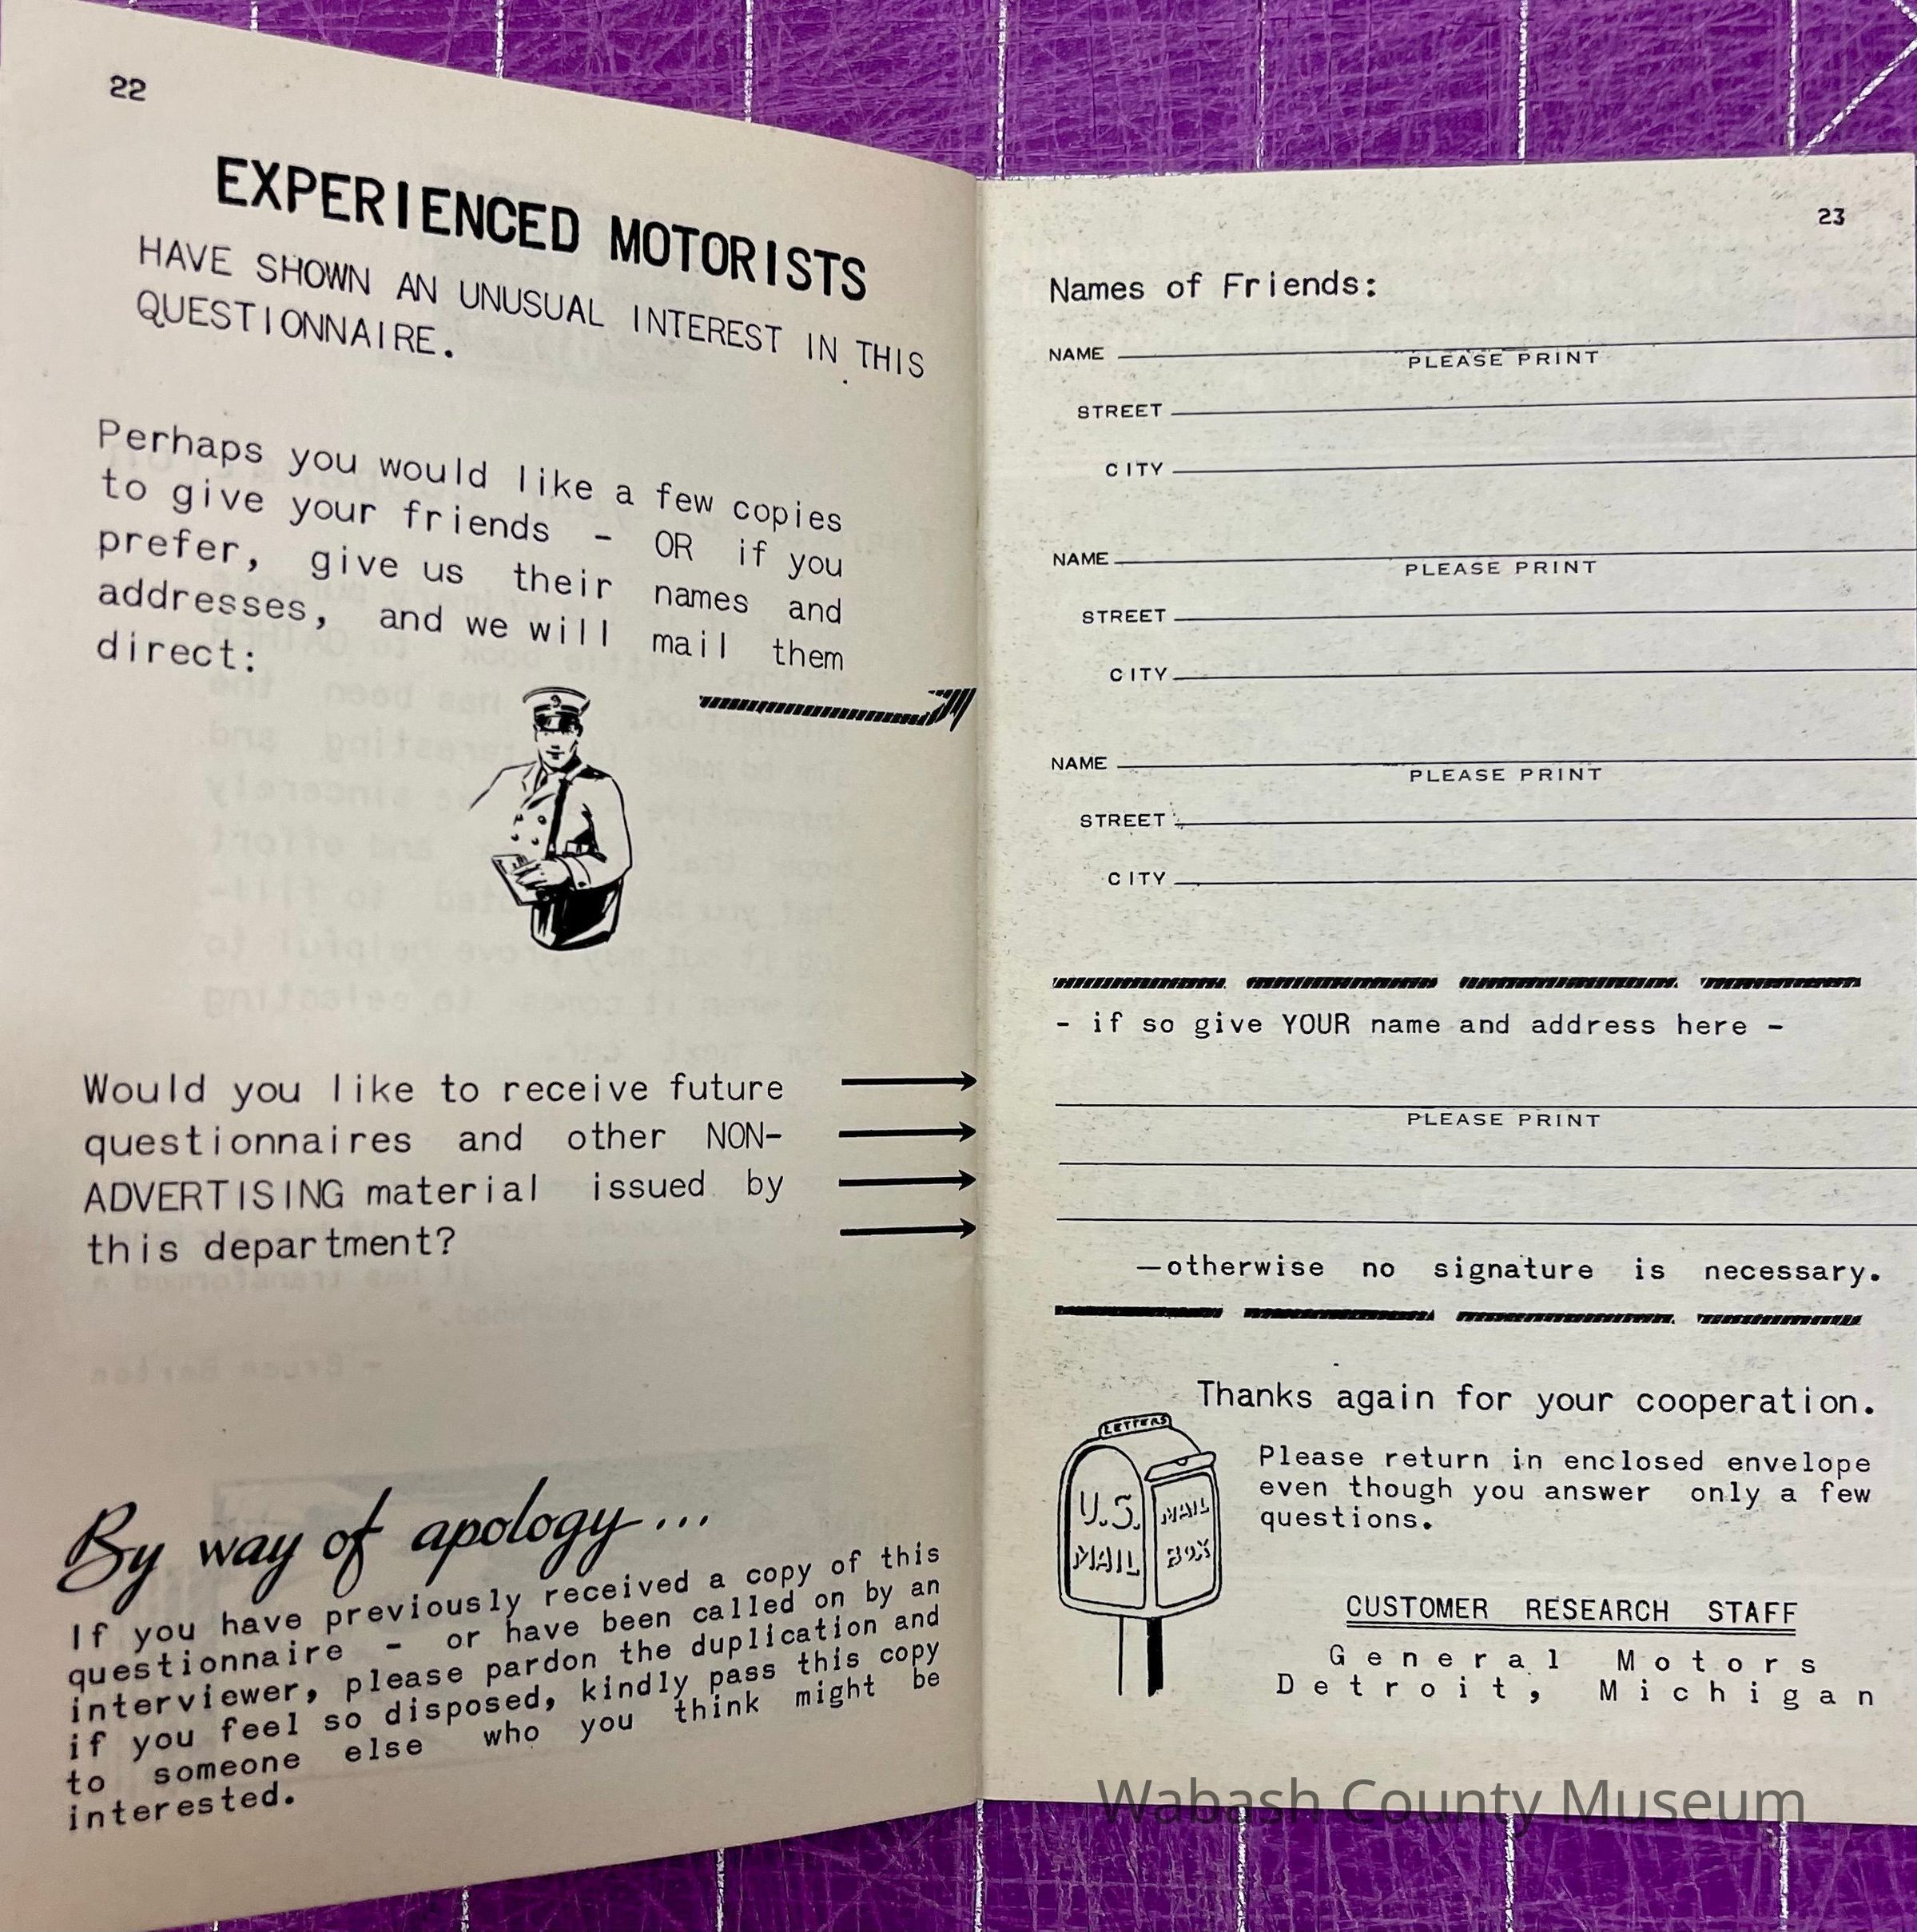 22
EXPERIENCED MOTORISTS
HAVE SHOWN AN UNUSUAL INTEREST IN THIS
QUESTIONNAIRE.
Perhaps you would like a few copies
to give your friends - OR if you
prefer, give us their names and
addresses, and we will mail them
direct:
Would you like to receive future
questionnaires and other NON-
ADVERTISING material issued by
this department?
By way of apology...
If you have previously received a copy of this
questionnaire - or have been called on by an
interviewer, please pardon the duplication and
if you feel so disposed, kindly pass this copy
to someone else who you think might be
interested.
23
Names of Friends:
NAME
PLEASE PRINT
STREET
CITY
NAME
PLEASE PRINT
STREET
CITY
NAME
PLEASE PRINT
STREET
CITY
- if so give YOUR name and address here -
PLEASE PRINT
—otherwise no signature is necessary.
Thanks again for your cooperation.
LETTERS
U.S.
MAIL
MAIL
BOX
Please return in enclosed envelope
even though you answer only a few
questions.
CUSTOMER RESEARCH STAFF
General Motors
Detroit, Michigan
Wabash County Museum